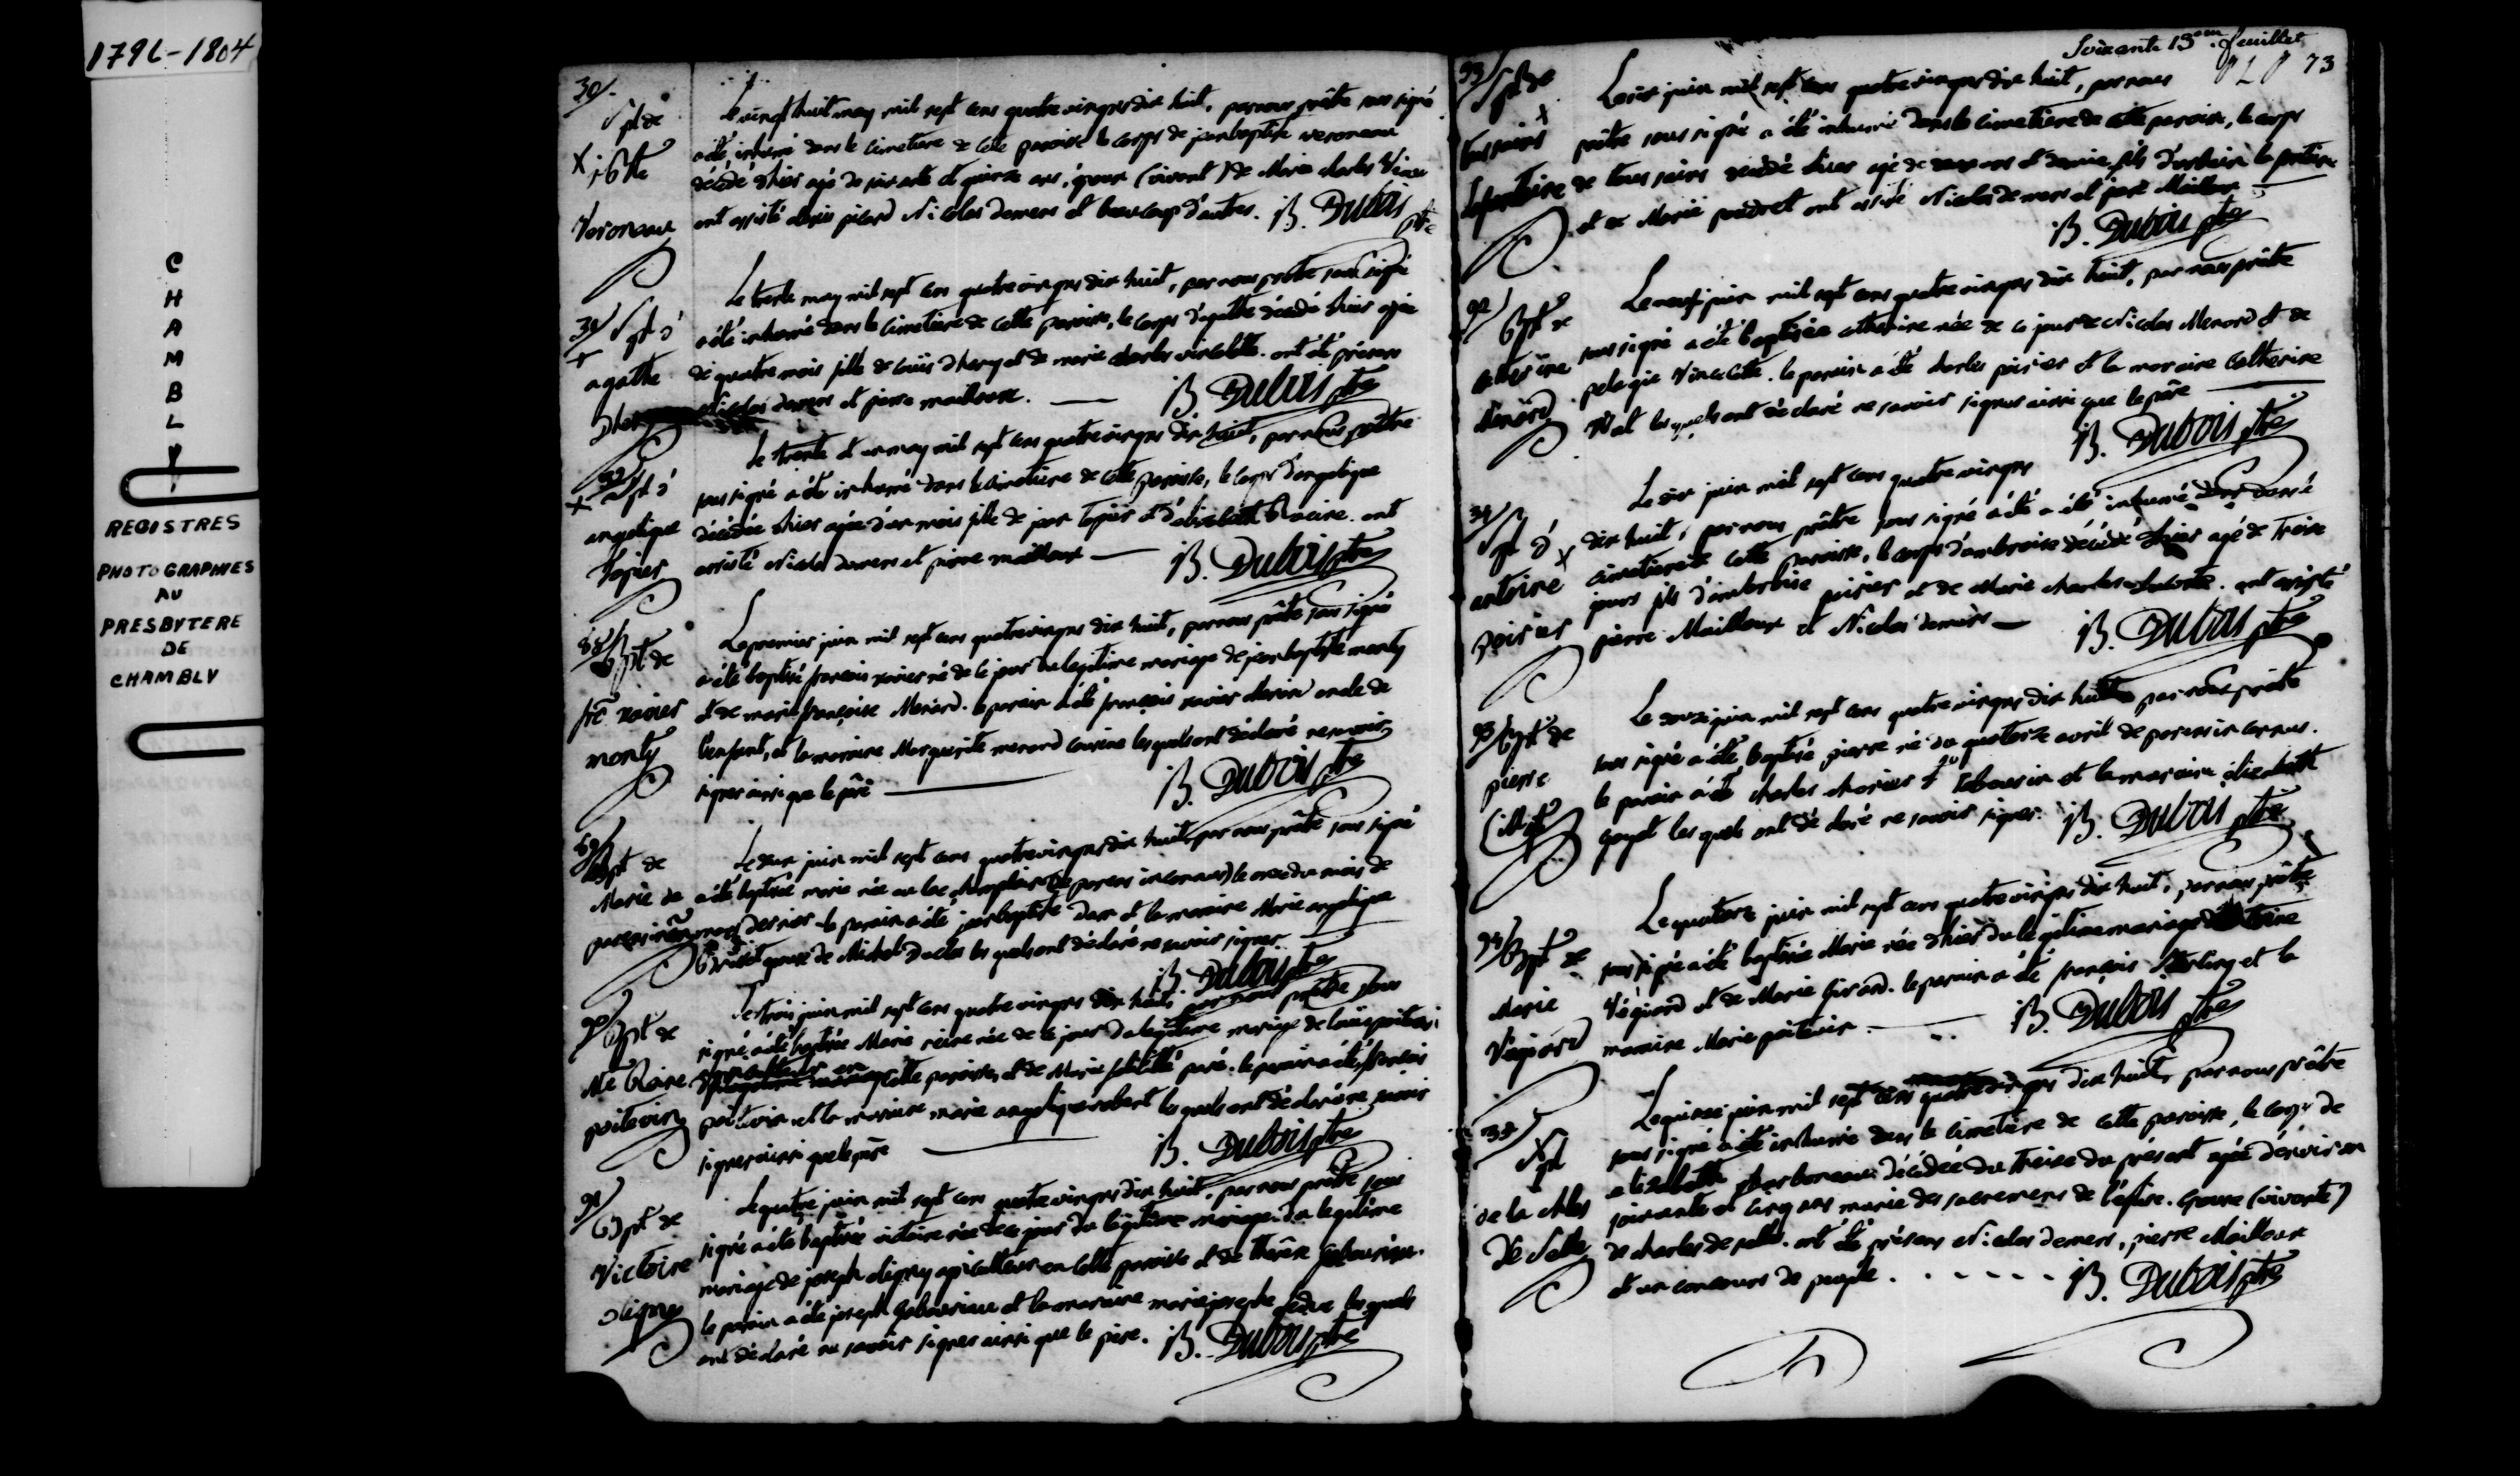 1792-1804
CHAMBLY
REGISTRES
PHOTOGRAPHIES
AU
PRESBYTERE
DE
CHAMBLY
30/
Spt de
j. Bte
Veroneau
Le vingt huit may mil sept cens quatre vingts dix huit, par nous prêtre sous signé
a été inhumé dans le cimetiere de cette paroisse le corps de jean baptiste veroneau
décédé d'hier agé de soixante et quinze ans, époux (vivant) de Marie charles
ont assisté picard Nicolas demers et beaucoup d'autres. B. Dubois ptre
31/ Spt d'
agathe
Le trente may mil sept cens quatre vingts dix huit, par nous prêtre sous signé
a été inhumé dans le cimetiere de cette paroisse, le corps d'agathe décédé d'hier agée
de quatre mois fille de Louis et de marie charles vincelette. ont été présens
Nicolas demers et pierre mailloux. B. Dubois ptre
32/ Spt d'
angelique
Tepier
Le trente et un may mil sept cens quatre vingts dix huit, par nous prêtre
sous signé a été inhumé dans le cimetiere de cette paroisse, le corps d'angelique
décédée d'hier agée d'un mois fille de jean Tepier et d'elizabeth Racine. ont
assisté Nicolas demers et pierre mailloux B. Dubois ptre
88/ Bpt de
frc xavier
monty
Le premier juin mil sept cens quatre vingts dix huit, par nous prêtre sous signé
a été baptisé françois xavier né de ce jour du legitime mariage de jean baptiste monty
et de marie françoise Menard. le parain a été françois xavier oncle de
l'enfant, et la maraine Marguerite menard cousine lesquels ont déclaré ne savoir
signer ainsi que le père B. Dubois ptre
89/ Bpt de
Marie de
Le deux juin mil sept cens quatre vingts dix huit, par nous prêtre sous signé
a été baptisée marie née au lac champlain (de parens inconnus) le onze du mois de
mars dernier. le parain a été jean baptiste et la maraine Marie angelique
épouse de Michel lesquels ont déclaré ne savoir signer.
B. Dubois ptre
90/ Bpt de
Me Reine
poitevin
Le trois juin mil sept cens quatre vingts dix huit, par nous prêtre sous
signé a été baptisée Marie reine née de ce jour du legitime mariage de Louis poitevin
agriculteur en cette paroisse, et de Marie paré. le parain a été françois
poitevin et la maraine marie angelique robert lesquels ont déclaré ne savoir
signer ainsi que le père B. Dubois ptre
91/
Bpt de
Victoire
Le quatre juin mil sept cens quatre vingts dix huit, par nous prêtre sous
signé a été baptisée victoire née de ce jour du legitime mariage du legitime
mariage de joseph agriculteur en cette paroisse et de therese
le parain a été joseph et la maraine marie josephe lesquels
ont déclaré ne savoir signer ainsi que le père. B. Dubois ptre
Soixante 13eme feuillet
73
33/
Spt de
Toussaint
Lafontaine
Le juin mil sept cens quatre vingts dix huit, par nous
prêtre sous signé a été inhumé dans le cimetiere de cette paroisse, le corps
de toussaint décédé d'hier agé de ans et demie fils
et de Marie poudret ont assisté Nicolas demers et pierre Mailloux
B. Dubois ptre
92/
Bpt de
catherine
Menard
Le neuf juin mil sept cens quatre vingts dix huit, par nous prêtre
sous signé a été baptisée catherine née de ce jour de Nicolas Menard et de
pelagie Vincelette. le parain a été charles poirier et la maraine Catherine
Viat lesquels ont déclaré ne savoir signer ainsi que le père
B. Dubois ptre
34/
Spt d'
antoine
poirier
Le dix juin mil sept cens quatre vingts
dix huit, par nous prêtre sous signé a été a été inhumé dans
cimetiere de cette paroisse, le corps d'ambroise décédé d'hier agé de treise
jours fils d'ambroise poirier et de Marie charles. ont assisté
pierre Mailloux et Nicolas demers B. Dubois ptre
93/ Bpt de
pierre
Le juin mil sept cens quatre vingts dix huit par nous prêtre
sous signé a été baptisé pierre né du quatorze avril de parens inconnus.
le parain a été charles et la maraine elizabeth
goyet lesquels ont déclaré ne savoir signer. B. Dubois ptre
94/ Bpt de
Marie
Vegiard
Le quatorze juin mil sept cens quatre vingts dix huit, par nous prêtre
sous signé a été baptisée Marie née d'hier du legitime mariage
Vegiard et de Marie Girard. le parain a été françois et la
maraine Marie poitevin. B. Dubois ptre
35/
Spt
Le quinze juin mil sept cens quatre vingts dix huit, par nous prêtre
sous signé a été inhumée dans le cimetiere de cette paroisse, le corps de
elizabeth charbonneau décédée du treise du présent agée d'environ
soixante et cinq ans munie des sacremens de l'église. épouse (vivante)
de charles de ont été présens Nicolas demers, pierre Mailloux
et un concours de peuple. B. Dubois ptre